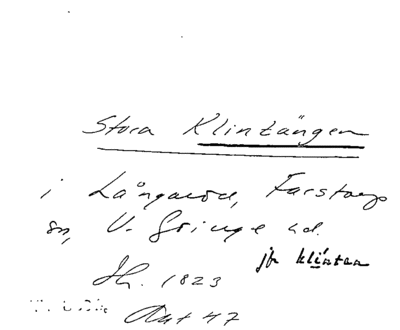 Stora Klintängen
i Långaröd, Farstorps
sn, V. Göinge hd.
jfr klinten
Sh. 1823
Akt 47